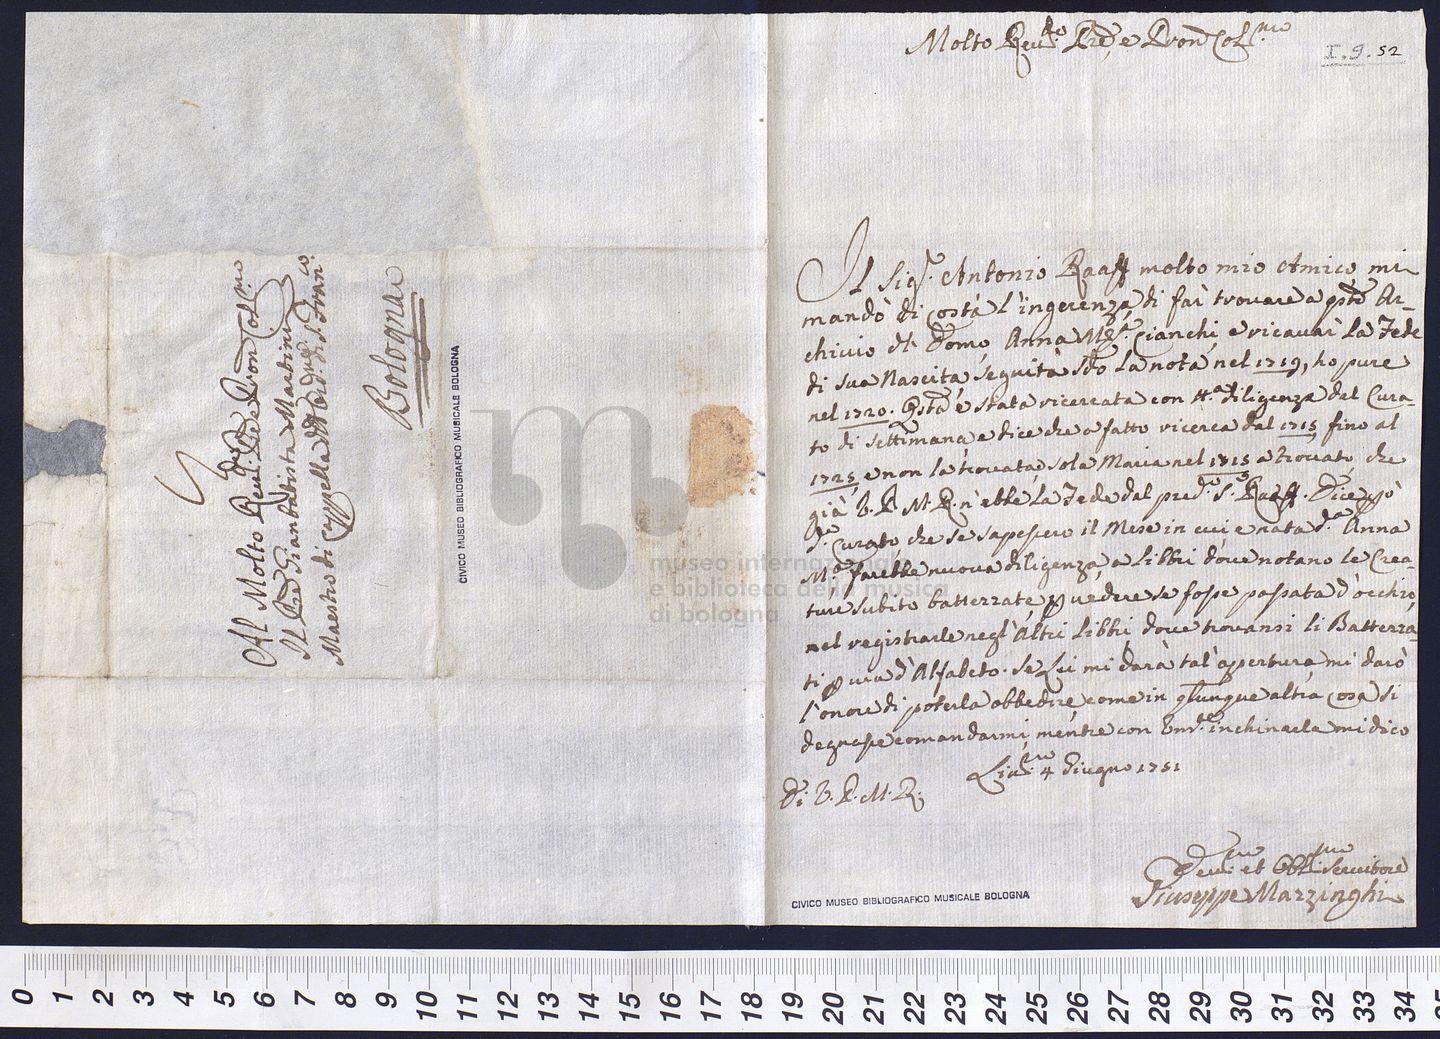 Molto Reu.do P.dre, e Pron Col.mo
I. 9. 52
Il Sig.r Antonio Raaff molto mio Amico, mi
mandò di costà l'ingerenza, di far trovare a q.sto Ar-
chivio d. Domo, Anna M.a Cianchi, e ricavar la Fede
di sua Nascita, seguita s.do la nota, nel 1719, ho pure
nel 1720. Q.sta è stata ricercata con tt.a diligenza dal Cura-
to di settimana, e dice che a fatto ricerca dal 1715 fino al
1725, e non la trovata, sola Maria nel 1715 a trovato, che
già V. P. M. R. n'ebbe la Fede dal pred.o S.r Raaff. Dice però
d.o Curato, che se sapessero il Mese in cui è nata d.a Anna
M.a farebbe nuova diligenza a Libbri dove notano le Crea-
ture subito batterzate p vedere se fosse passata d'occhio,
nel registrarle negl'Altri Libbri, dove trovansi li Batterza-
ti p via d'Alfabeto. Se Lei mi darà tal'apertura, mi darò
l'onore di poterla obbedire, come in q.lunque altra cosa si
degnasse comandarmi, mentre con Um.de inchinarla mi dico
Di V. P. M. R.
Liv.no 4 Giugno 1751
Dev.mo et Obbl.mo Servitore
Giuseppe Mazzinghi
CIVICO MUSEO BIBLIOGRAFICO MUSICALE BOLOGNA
Al Molto Reu.do P.dre Pron Col.mo
Il P.dre Gianbatista Martini
Maestro di Cappella di S. Fran.co
Bologna
CIVICO MUSEO BIBLIOGRAFICO MUSICALE BOLOGNA
museo internazionale
e biblioteca della musica
di bologna
0 1 2 3 4 5 6 7 8 9 10 11 12 13 14 15 16 17 18 19 20 21 22 23 24 25 26 27 28 29 30 31 32 33 34 35